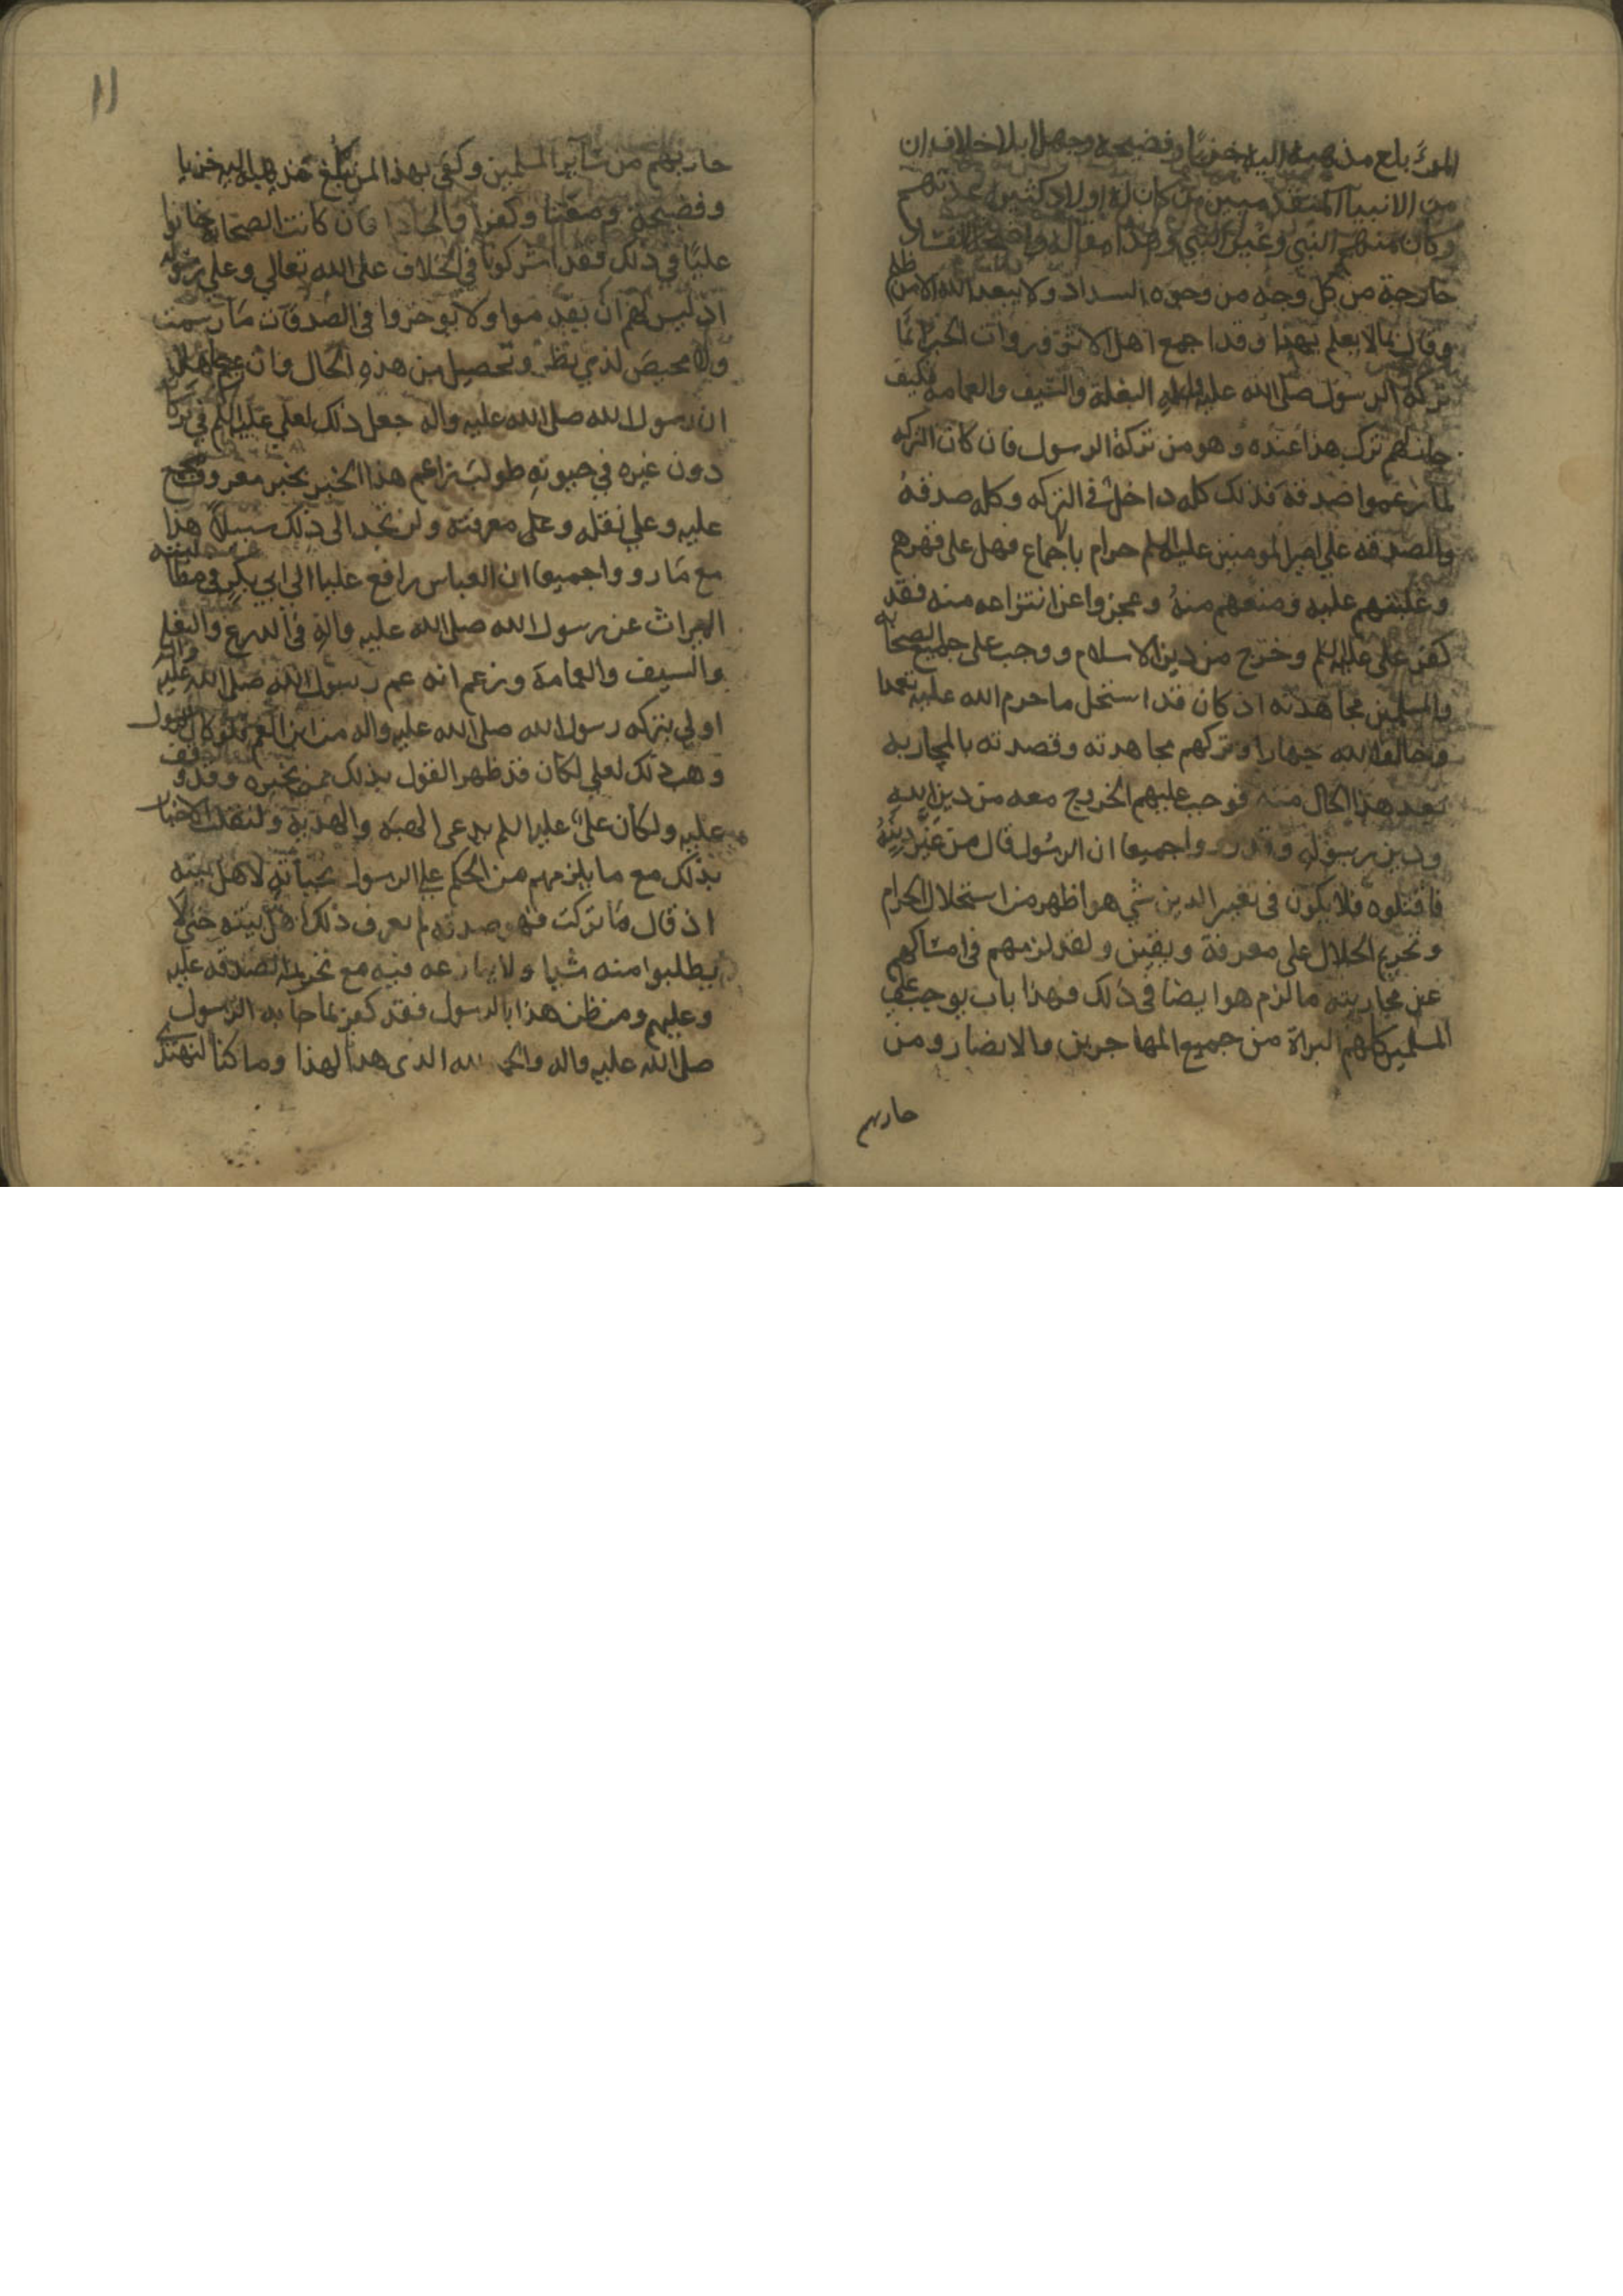 المرء بلغ مذهبه اليه خزيا وفضيحة وجهلا بلا خلاف ان
من الانبياء المتقدميين من كان له اولاد كثيرة عدتهم
وكان منهم النبي وغير النبي وهذا مقالة واضحة الفساد
خارجة من كل وجه من وجوه السداد ولا يبعد الله الا من ظلم
وقال بما لا يعلم بهذا وقد اجمع اهل الاثر وروات الخبر انما
تركه الرسول صلى الله عليه واله البغلة والسيف والعمامة فكيف
جاز لهم ترك هذا عنده وهو من تركة الرسول فان كان التركه
كما زعموا صدقة فذلك كله داخل في التركه وكله صدقة
والصدقه على امير المومنين عليه السلم حرام باجماع فهل على قهرهم
وغلبتهم عليه ومنعهم منه وعجزوا عن انتزاعه منه فقد
كفر على عليه السلم وخرج من دين الاسلام ووجب على جميع الصحابه
والمسلمين مجاهدته اذ كان قد استحل ما حرم الله عليه تعمدا
وخالف الله جهارا وتركهم مجاهدته وقصدته بالمحاربه
بعد هذا الحال منه فوجب عليهم الخروج معه من دين الله
ودين رسوله وقد رووا جميعا ان الرسول قال من غير دينه
فاقتلوه فلا يكون في تغيير الدين شي هو اظهر من استحلال الحرام
وتحريم الحلال على معرفة ويقين ولقد لزمهم في امساكهم
عن محاربته ما لزم هو ايضا في ذلك فهذا باب يوجب على
المسلمين كلهم البراة من جميع المهاجرين والانصار ومن
حاربهم
١١
حاربهم من سائر المسلمين وكفي بهذا لمن بلغ مذهبه اليه خزيا
وفضيحة ومقتا وكفرا والحادا فان كانت الصحابة خانوا
عليا في ذلك فقد اشركوا في الخلاف على الله تعالى وعلى رسوله
اذ ليس لهم ان يقدموا ولا يوخروا في الصدقات ما رسمت
ولا محيص لذي نظر وتحصيل من هذه الحال فان زعم جاهل
ان رسول الله صلى الله عليه واله جعل ذلك لعلي عليه السلم في تركته
دون غيره في حيوته طولب زاعم هذا الخبر بخبر معروف مجمع
عليه وعلى نقله وعلى معرفته ولن يجد الى ذلك سبيلا هذا
مع ما رووا جميعا ان العباس رافع عليا الي ابي بكر في مطالبته
الميراث عن رسول الله صلى الله عليه واله في الدرع والبغله
والسيف والعمامة وزعم انه عم رسول الله صلى الله عليه واله
اولي بتركه رسول الله صلى الله عليه واله من ابن العم فلو كان الرسول
وهب ذلك لعلي لكان قد ظهر القول بذلك ممن يخبره وقد وقف
عليه ولكان على عليه السلم يدعى الهبة والهدية ولنقلت الاخبار
بذلك مع ما يلزمهم من الحكم على الرسول بخيانته لاهل بيته
اذ قال ما تركت فهو صدقه لم يعرف ذلك اهل بيته حتى لا
يطلبوا منه شيا ولا ينازعه فيه مع تحريم الصدقه عليه
وعليهم ومن ظن هذا بالرسول فقد كفر بما جا به الرسول
صلى الله عليه واله والحمد لله الذي هدانا لهذا وما كنا لنهتدى